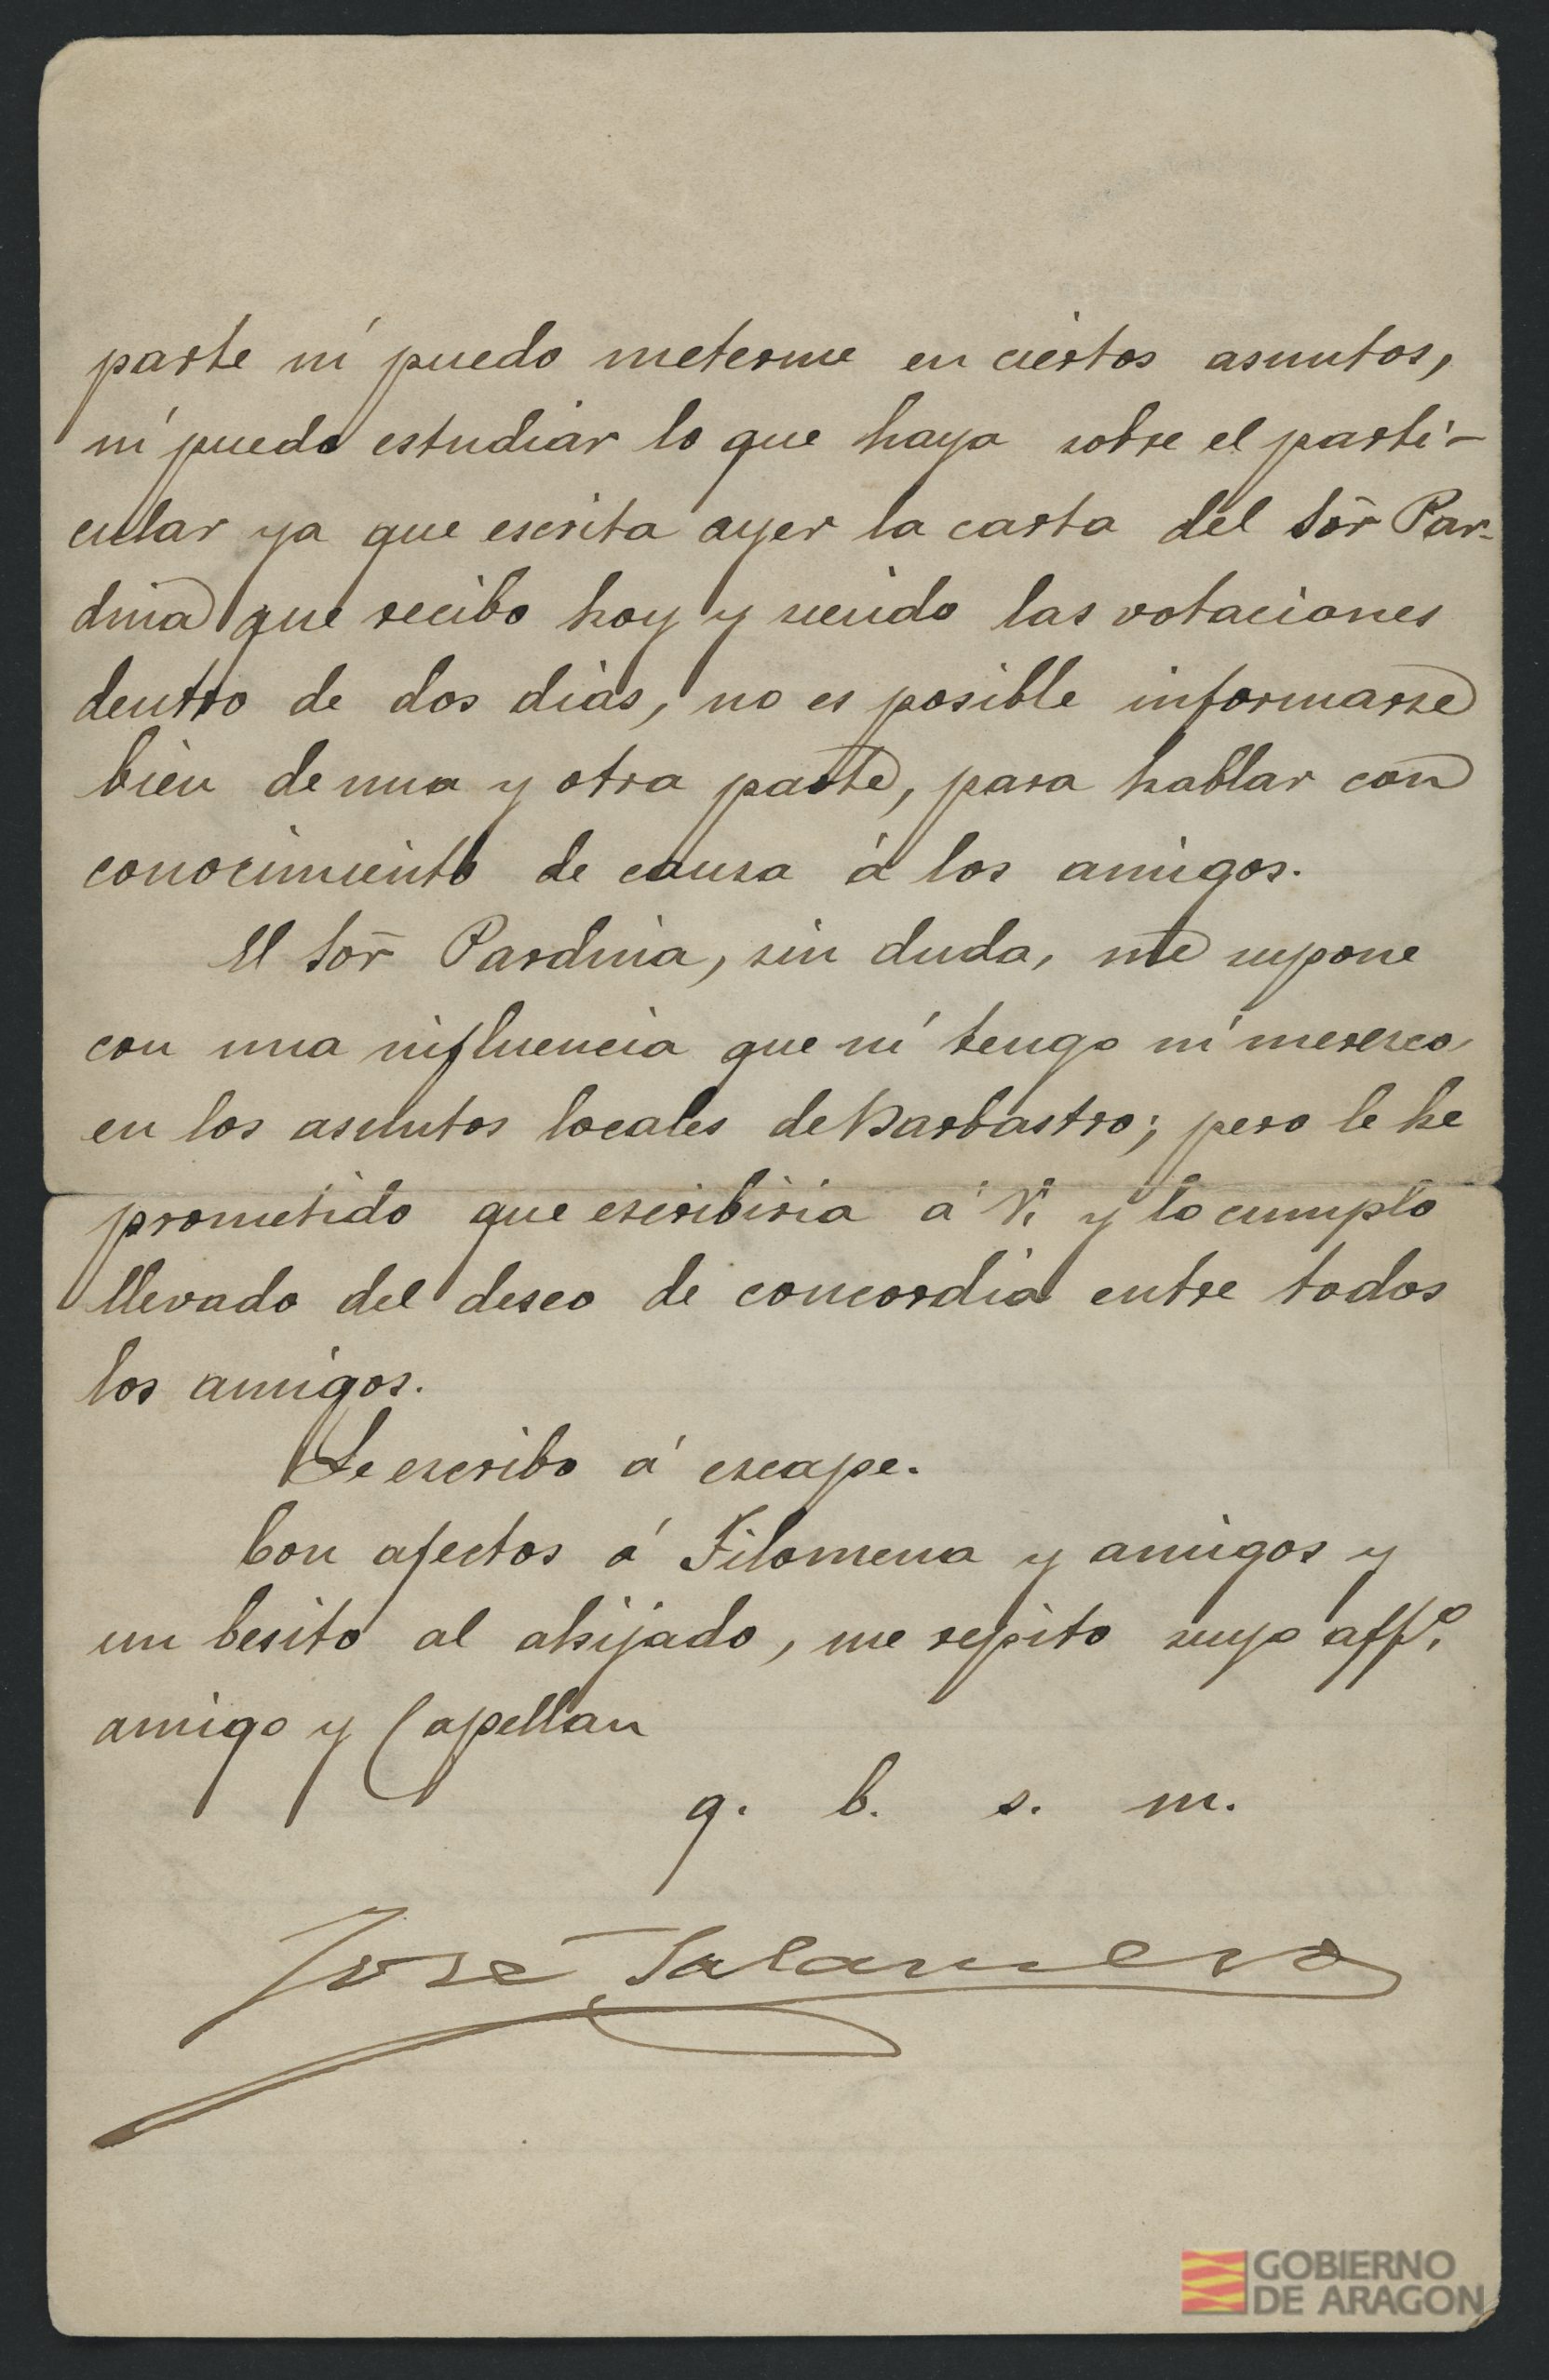 parte ni puedo meterme en ciertos asuntos,
ni puedo estudiar lo que haya sobre el parti-
cular ya que escrita ayer la carta del Sor̃ Par-
dina que recibo hoy y siendo las votaciones
dentro de dos dias, no es posible informarse
bien de una y otra parte, para hablar con
conocimiento de causa á los amigos.
El Sor̃ Pardina, sin duda, me supone
con una influencia que ni tengo ni meresco
en los asuntos locales de Barbastro; pero le he
prometido que escribiria á V. y lo cumplo
llevado del deseo de concordia entre todos
los amigos.
Le escribo á escape.
Con afectos á Filomena y amigos y
un besito al ahijado, me repito suyo affº.
amigo y Capellan
q. b. s. m.
José Salamero
GOBIERNO
DE ARAGON